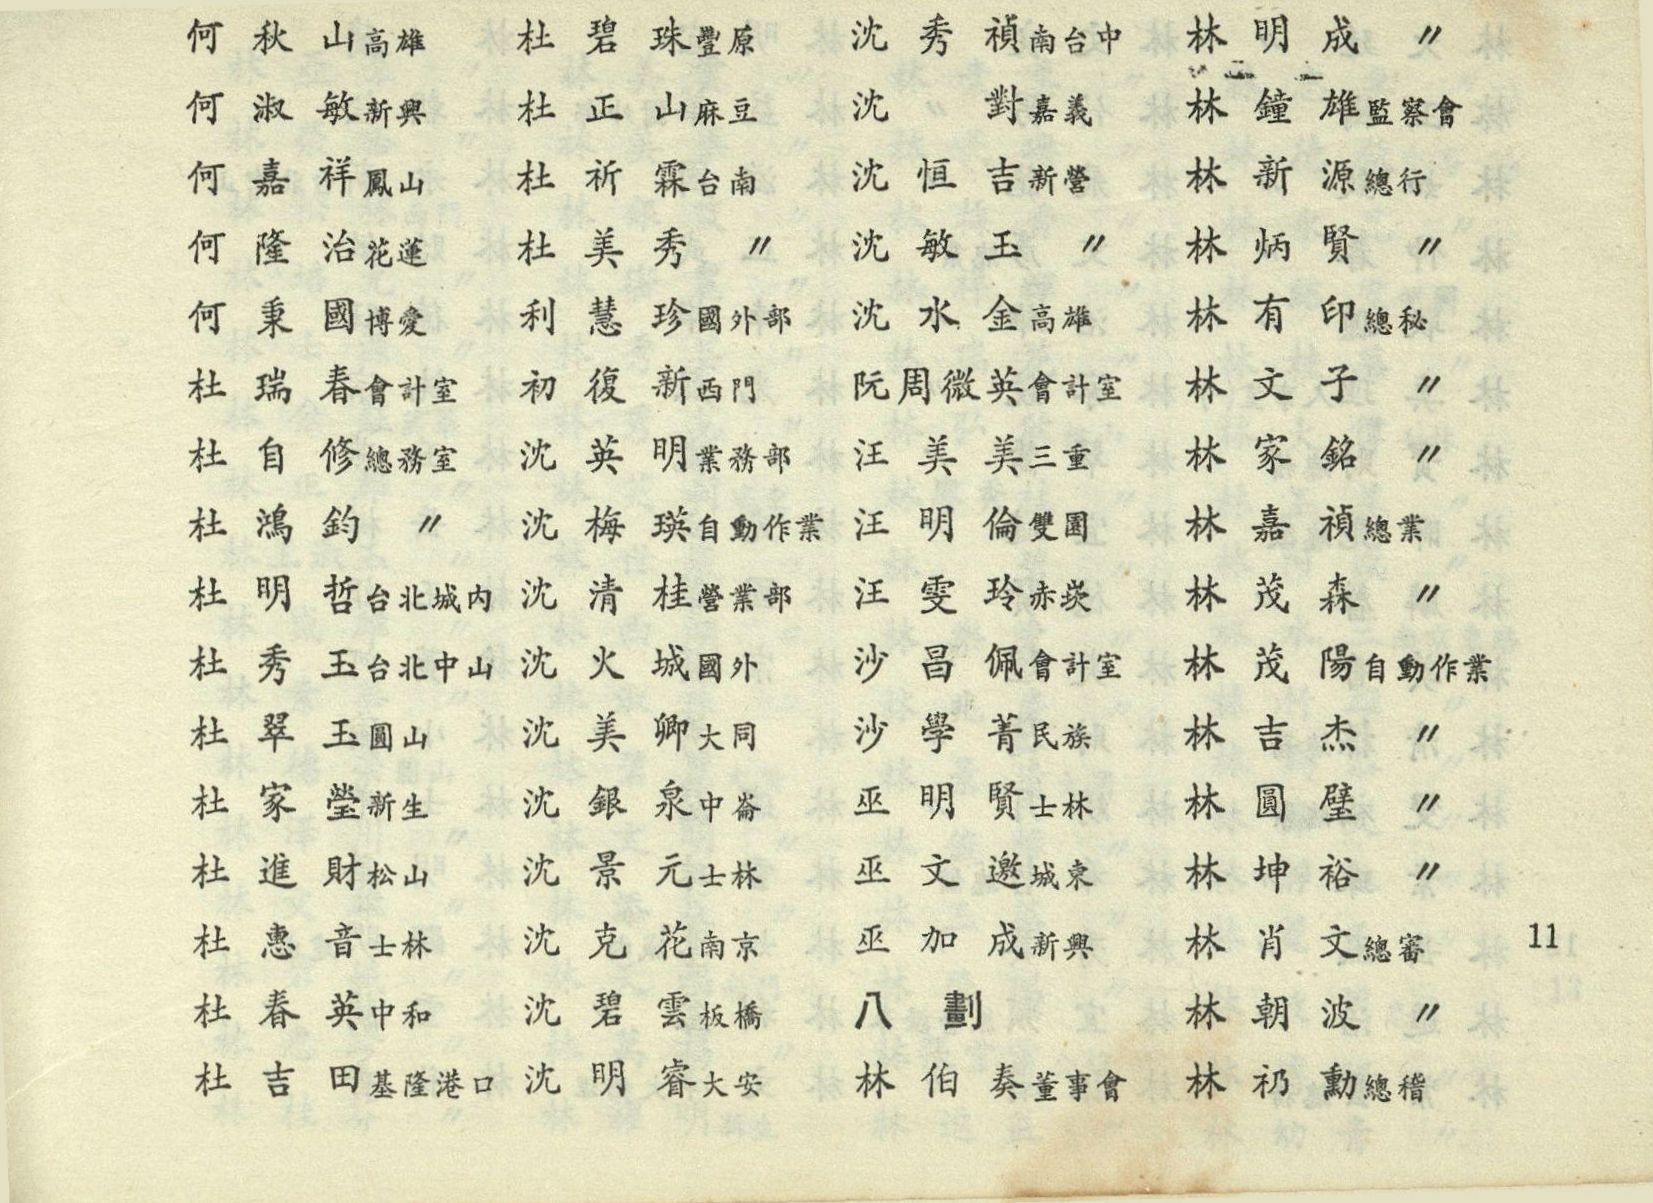 何秋山高雄
何淑敏新興
何嘉祥鳳山
何隆治花蓮
何秉國博愛
杜瑞春會計室
杜自修總務室
杜鴻鈞〃
杜明哲台北城內
杜秀玉台北中山
杜翠玉圓山
杜家瑩新生
杜進財松山
杜惠音士林
杜春英中和
杜吉田基隆港口
杜碧珠豐原
杜正山麻豆
杜祈霖台南
杜美秀〃
利慧珍國外部
初復新西門
沈英明業務部
沈梅瑛自動作業
沈清桂營業部
沈火城國外
沈美卿大同
沈銀泉中崙
沈景元士林
沈克花南京
沈碧雲板橋
沈明睿大安
沈秀禎南台中
沈對嘉義
沈恒吉新營
沈敏玉〃
沈水金高雄
阮周微英會計室
汪美美三重
汪明倫雙園
汪雯玲赤崁
沙昌佩會計室
沙學菁民族
巫明賢士林
巫文邀城東
巫加成新興
八劃
林伯奏董事會
林明成〃
林鐘雄監察會
林新源總行
林炳賢〃
林有印總秘
林文子〃
林家銘〃
林嘉禎總業
林茂森〃
林茂陽自動作業
林吉杰〃
林圓璧〃
林坤裕〃
林肖文總審
林朝波〃
林礽勳總稽
11